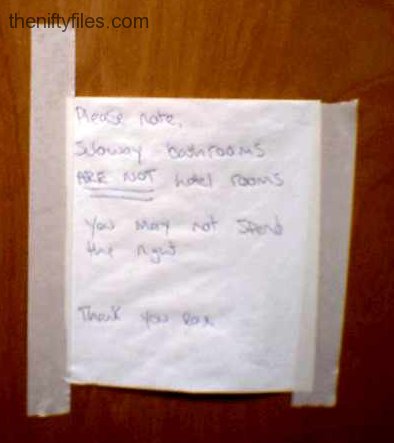 theniftyfiles.com
Please note,
Subway bathrooms
ARE NOT hotel rooms
You may not spend
the night
Thank you